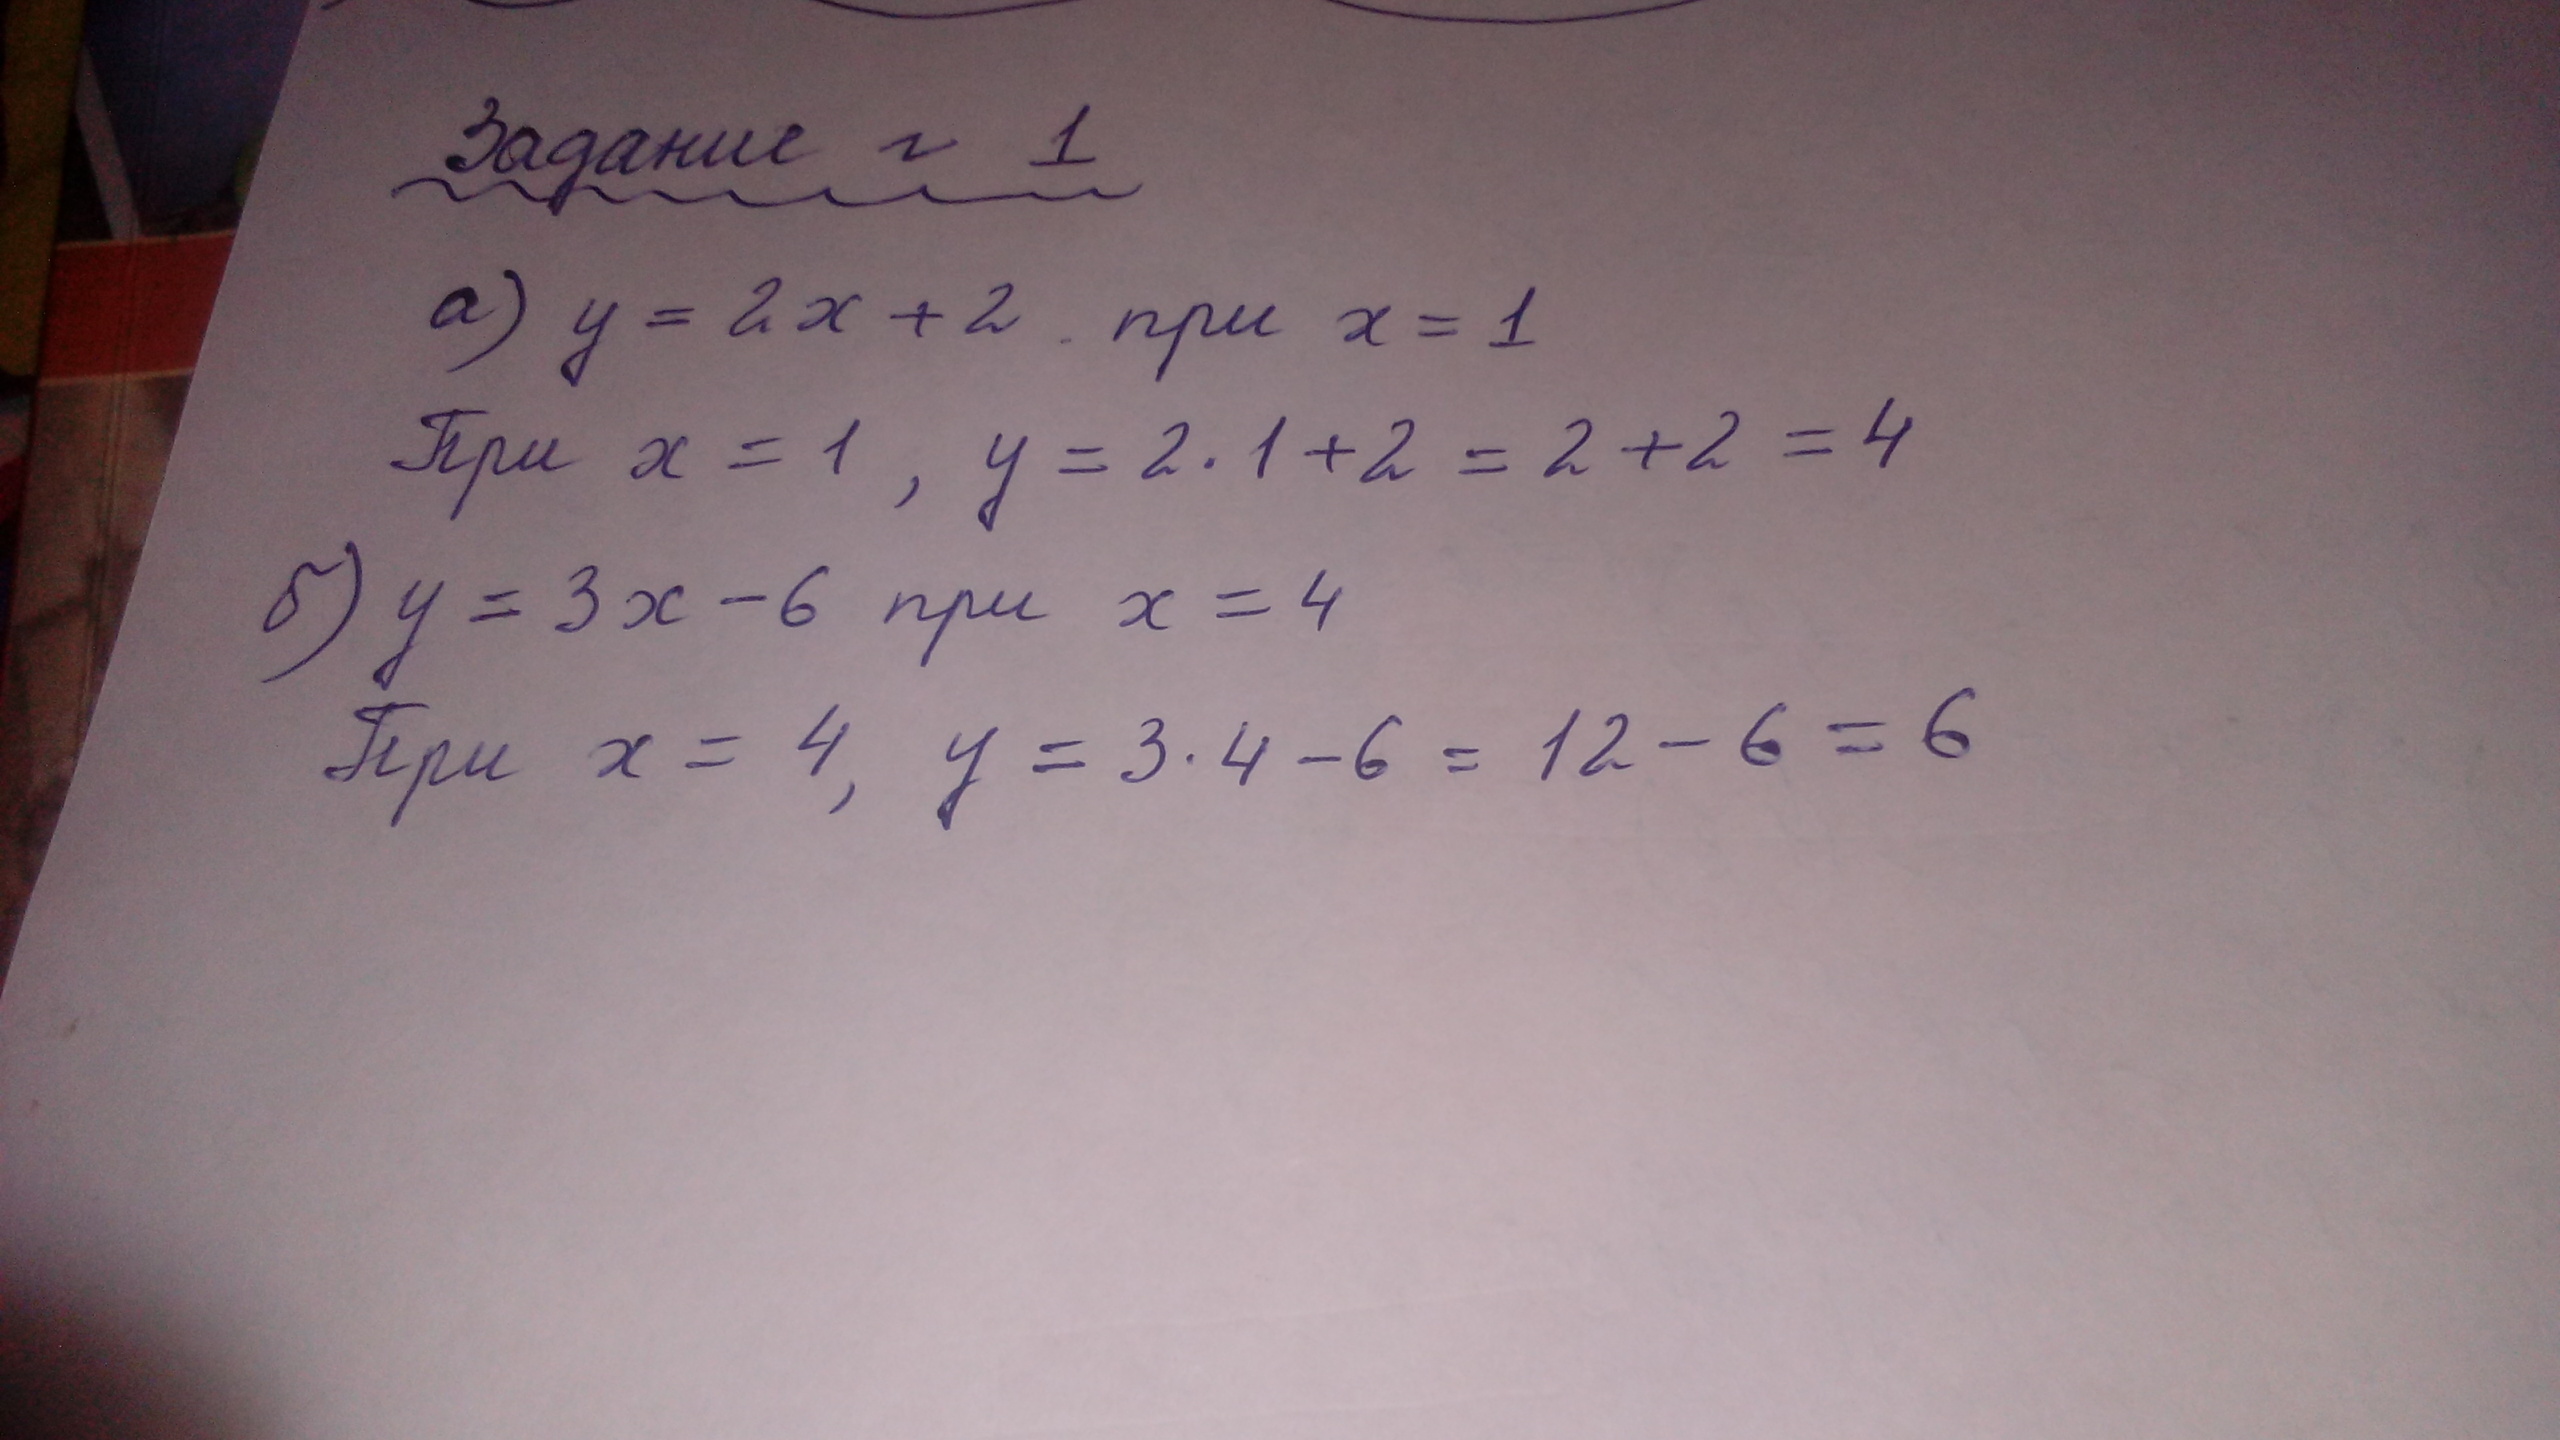 Задание ~ 1
а) y = 2x + 2 при x = 1
При x = 1, y = 2·1+2 = 2+2 = 4
б) y = 3x - 6 при x = 4
При x = 4, y = 3·4-6 = 12-6 = 6